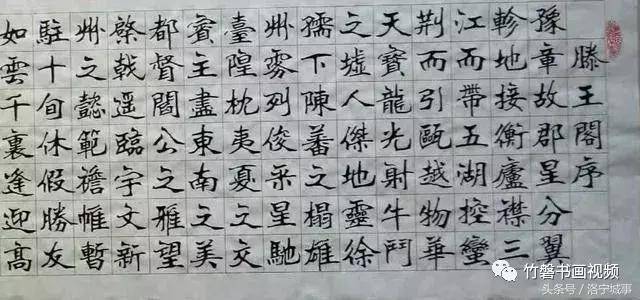 滕王閣序
豫章故郡星分翼
軫地接衡廬襟三
江而帶五湖控蠻
荆而引甌越物華
天寶龍光射牛鬥
之墟人傑地靈徐
孺下陳蕃之榻雄
州雾列俊采星馳
臺隍枕夷夏之交
賓主盡東南之美
都督閻公之雅望
棨戟遥臨宇文新
州之懿範襜帷暫
駐十旬休假勝友
如雲千裏逢迎高
竹磬书画视频
头条号 / 洛宁城事